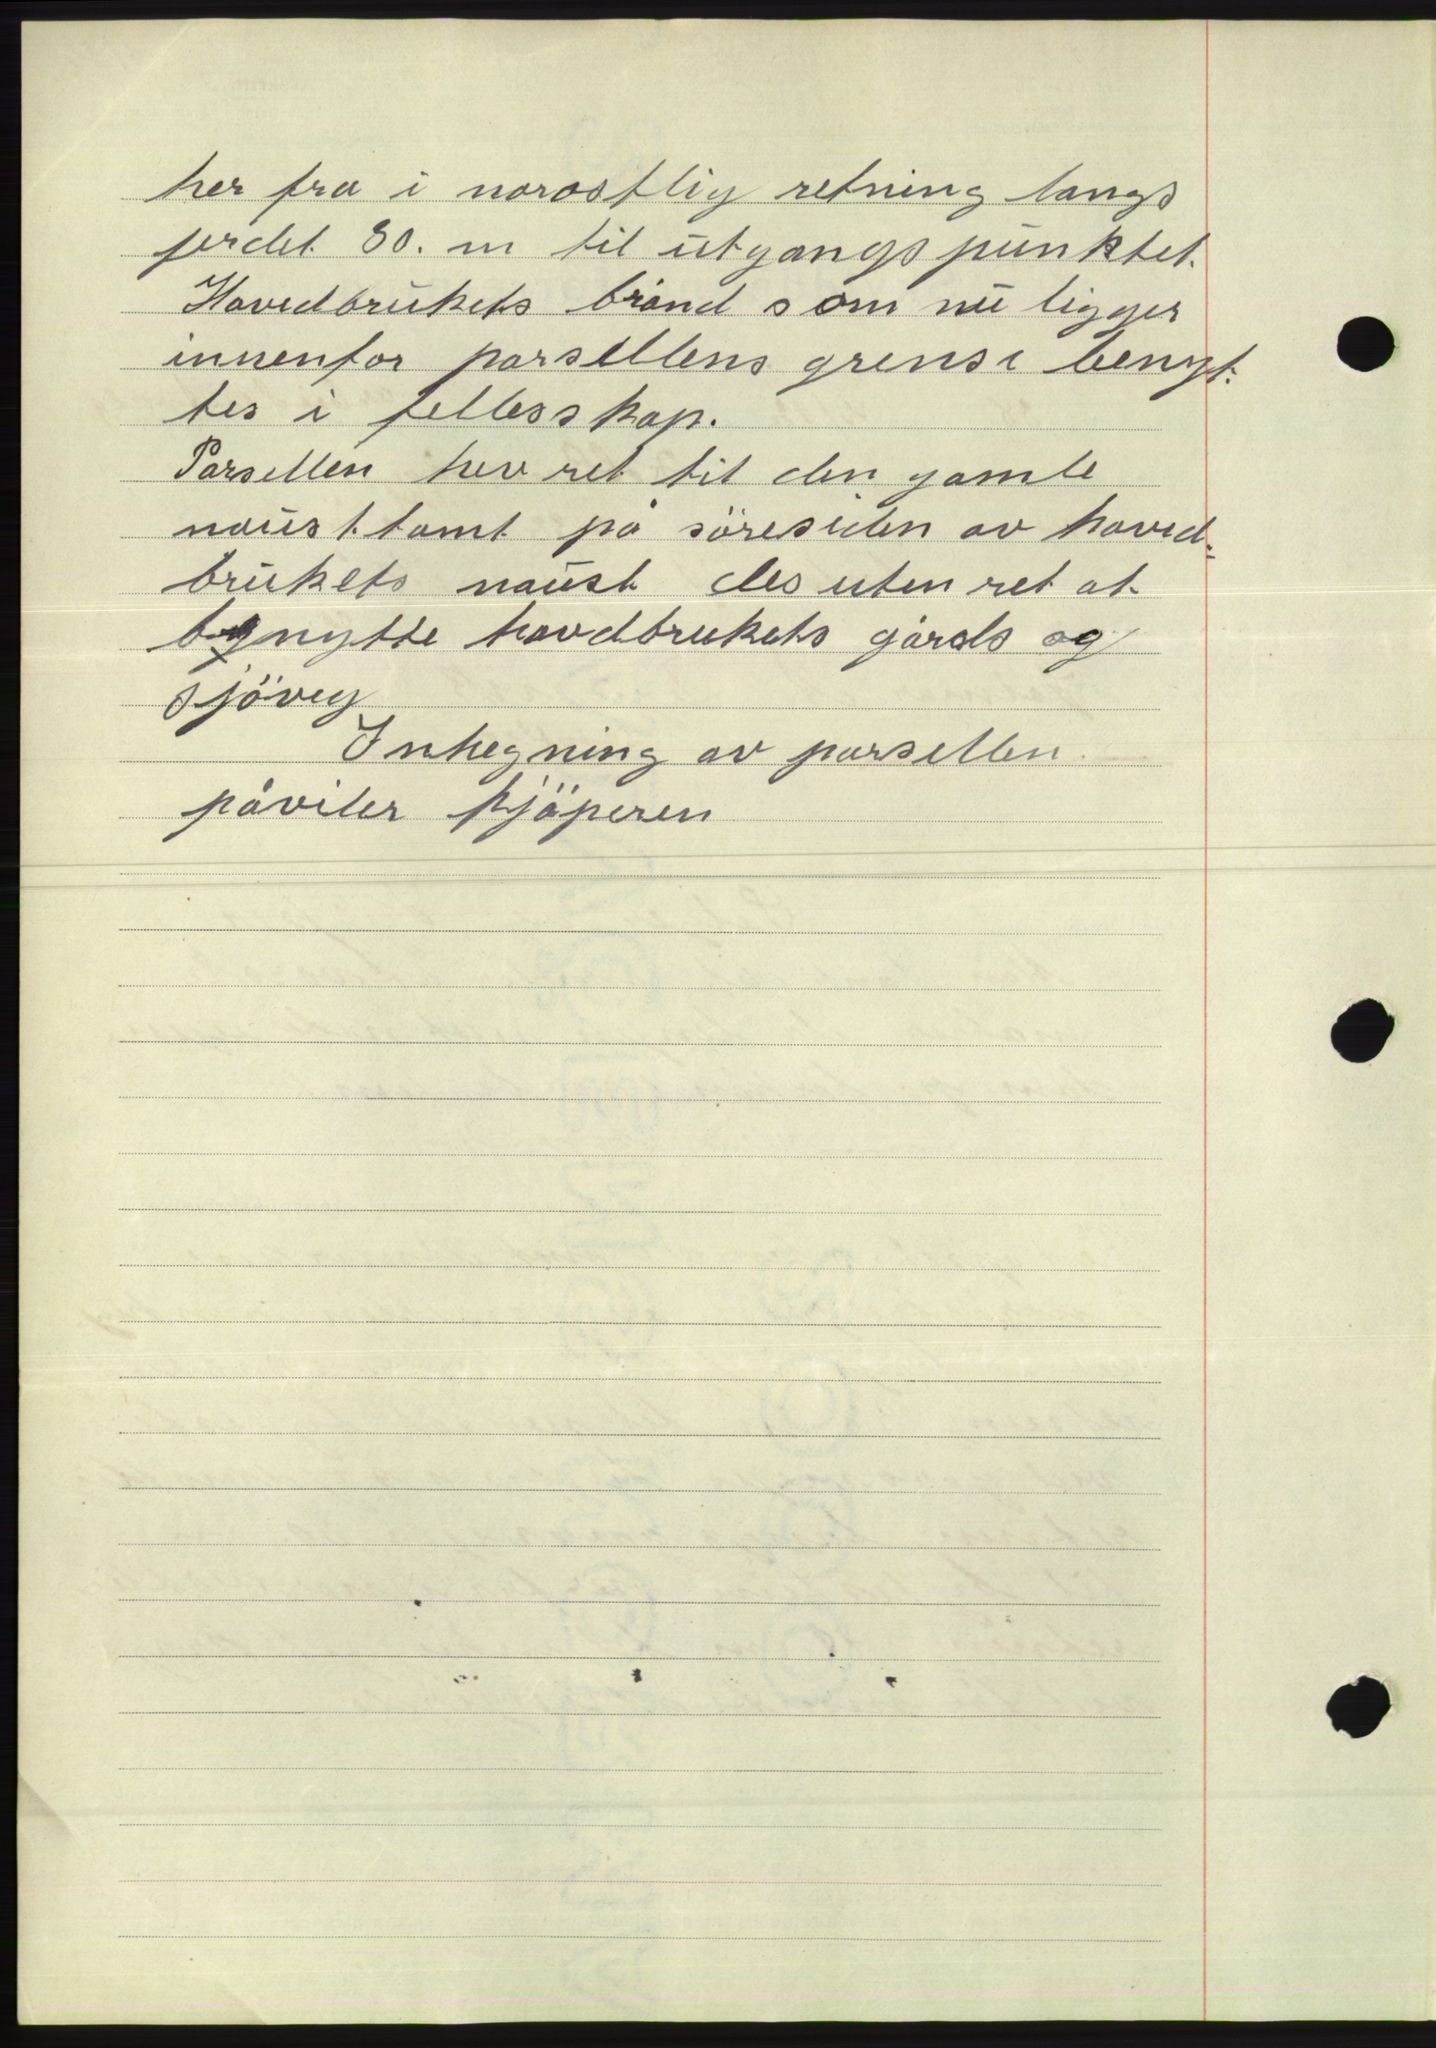 her fra i norostlig retning langs
jerdet 80. m til utgangspunktet.
Hovedbrukets brönd som nu ligger
innenfor parsellens grense benyt-
tes i fellesskap.
Parsellen hev ret til den gamle
nousttomt på söresiden av hoved-
brukets noust des uten ret at
benytte hovdbrukets gårds og
sjöveg
Inhegning av parsellen
påviler kjöperen